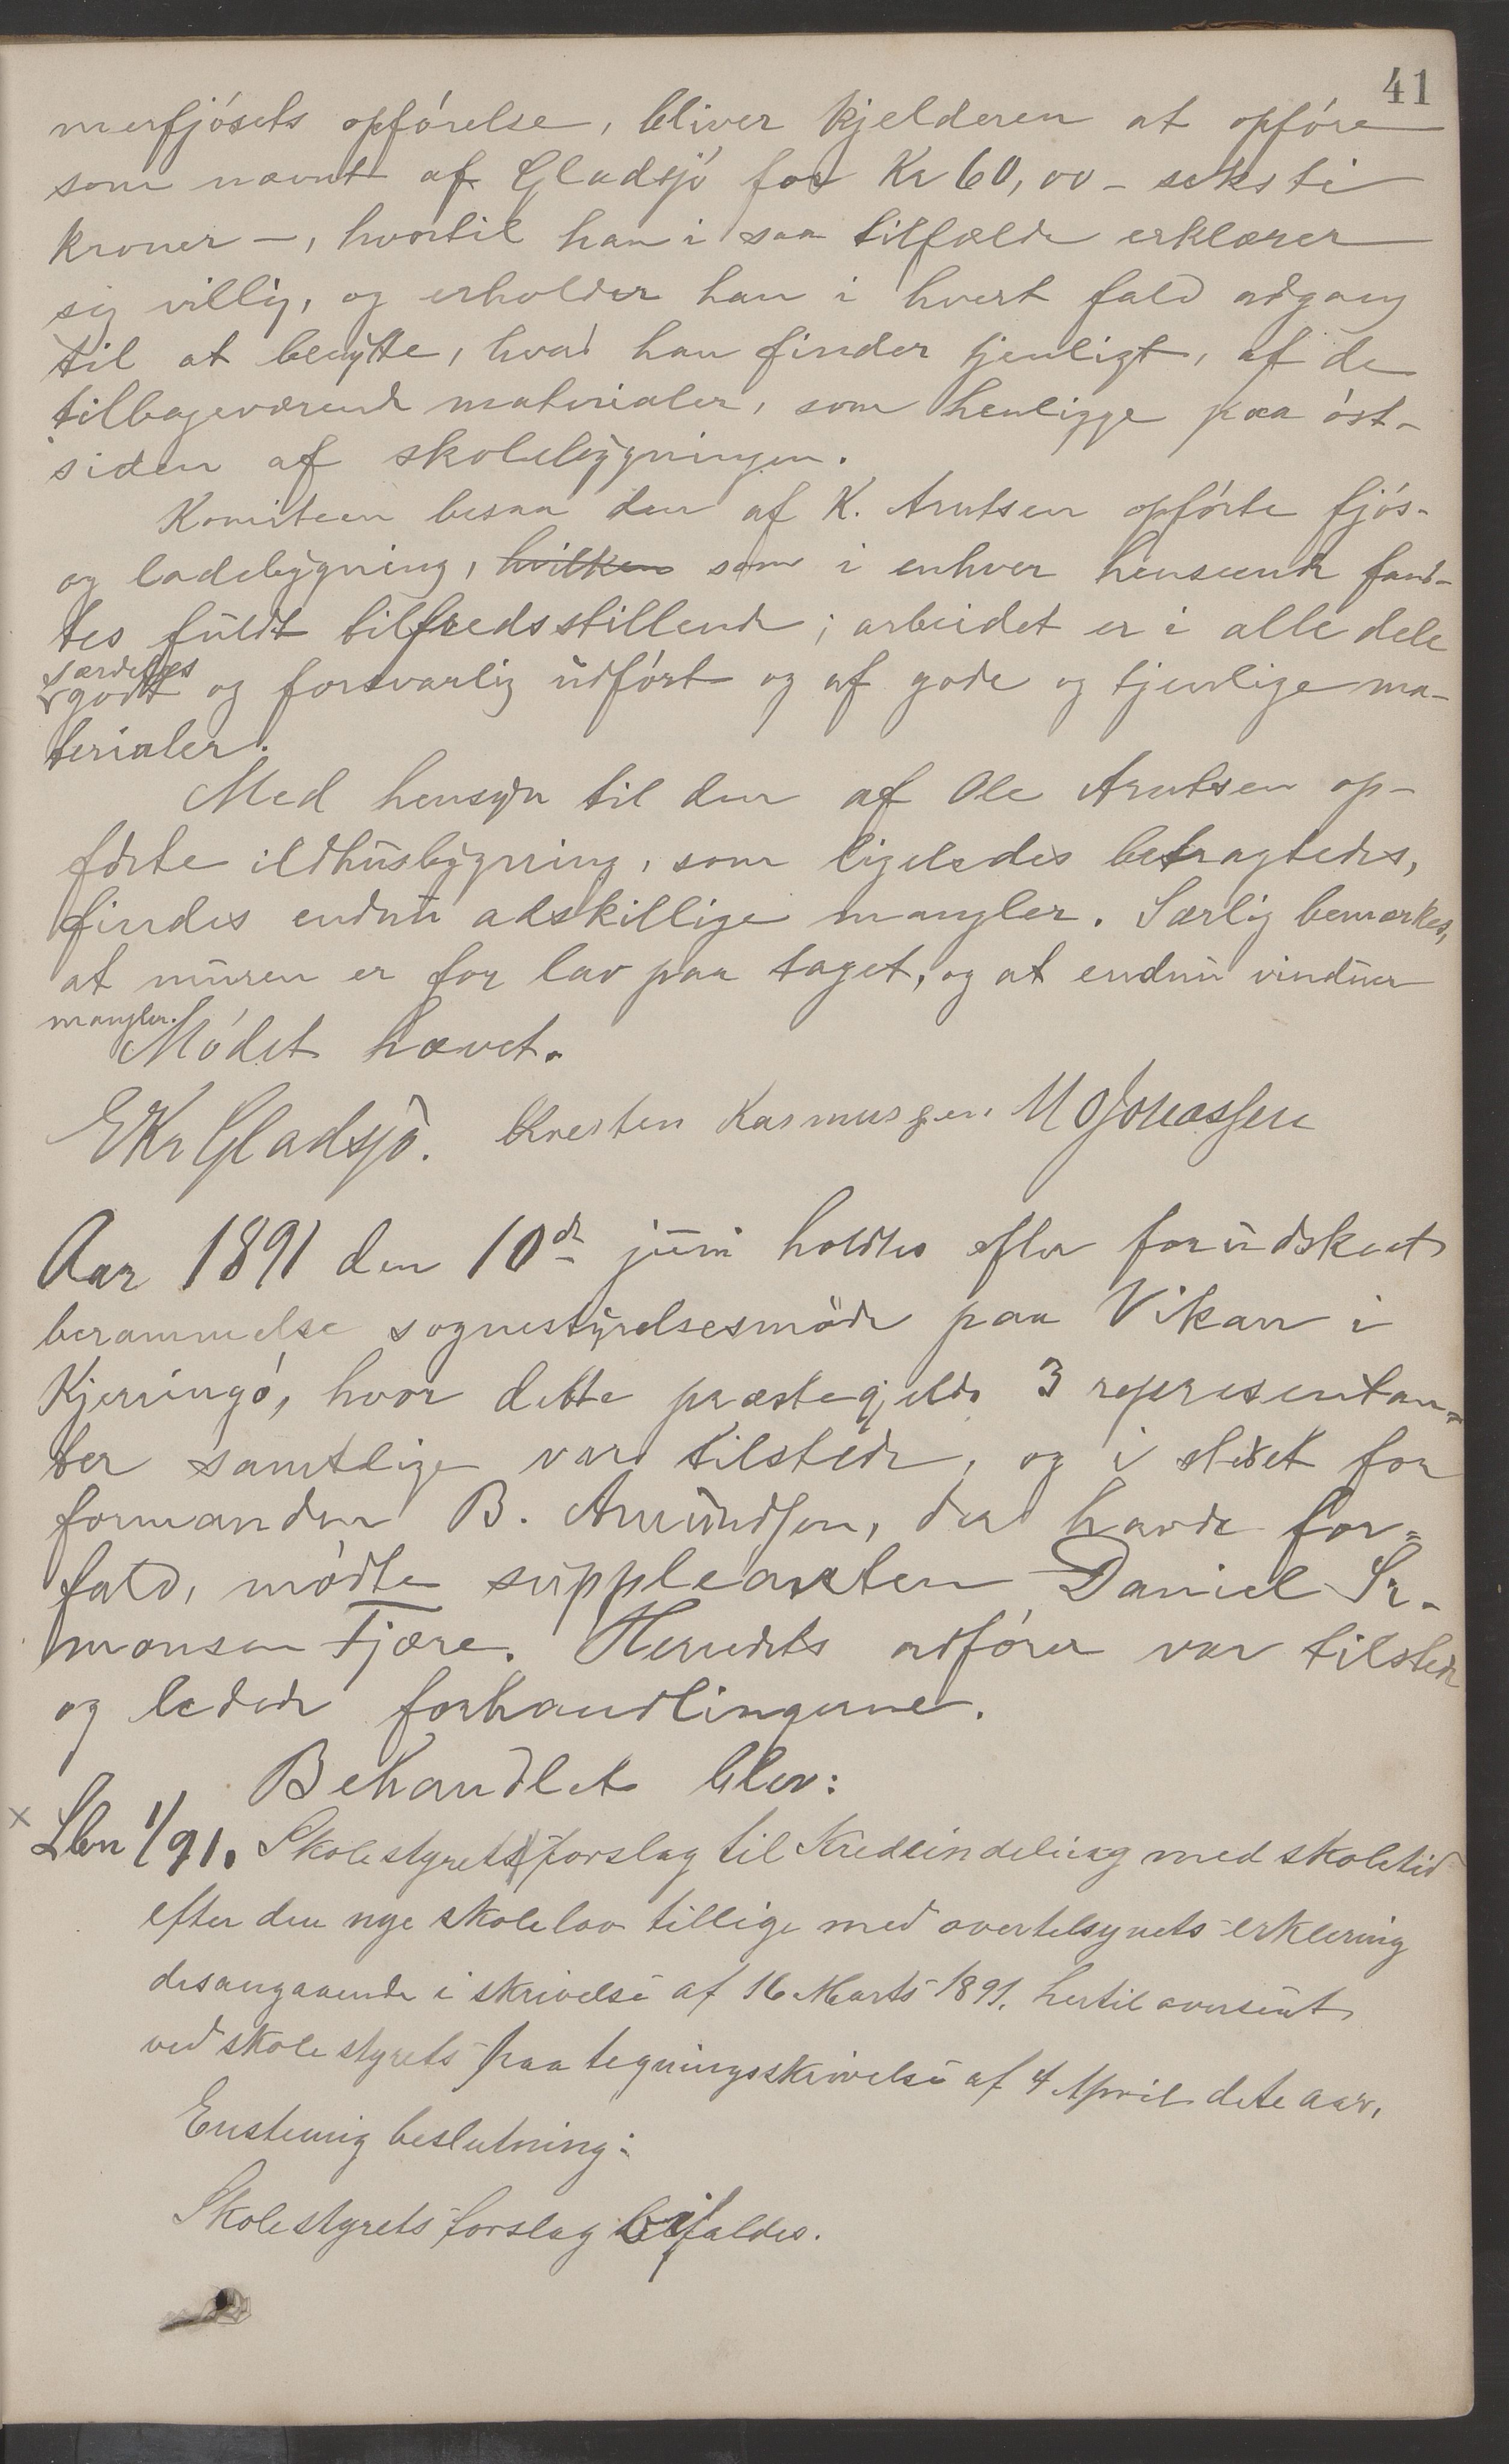 41
merfjósets opførelse, bliver kjelderen at opføre
som nævnt af Gladsjø for Kr 60,00 – seksti
kroner –, hvortil han i saa tilfælde erklærer
sig villig, og erholder han i hvert fald adgang
til at benytte, hvad han finder tjenligt, af de
tilbageværende materialer, som henligge paa øst-
siden af skolebygningen.
Komiteen besaa den af K. Arntsen opførte fjøs-
og ladebygning, hvilken som i enhver henseende fand-
tes fuldt tilfredsstillende; arbeidet er i alle dele
særdeles
godt og forsvarlig udført og af gode og tjenlige ma-
terialer.
Med hensyn til den af Ole Arntsen op-
førte ildhusbygning, som ligeledes betragtedes,
findes endnu adskillige mangler. Særlig bemærkes,
at muren er for lav paa taget, og at endnu vinduer
mangler.
Mødet hævet.
EKr Gladsjø. Kresten Rasmussen. M O Jonassen
Aar 1891 den 10de juni holdtes efter forudskeet
berammelse sognestyrelsesmøde paa Vikan i
Kjerringø, hvor dette præstegjelds 3 representan=
ter samtlige var tilstede, og i stedet for
formanden B. Amundsen, der havde for=
fald, mødte suppleanten Daniel Si-
monsen Fjære. Herredets ordfører var tilstede
og ledede forhandlingerne.
Behandlet blev:
x Lbn 1/91. Skolestyrets forslag til Kredsindeling med skoletid
efter den nye skolelov tillige med overtilsynets erklering
desangaaende i skrivelse af 16 Marts 1891. hertil oversent
ved skolestyrets paategningsskrivelse af 4 April dete aar.
Enstemig beslutning:
Skolestyrets forslag bifaldes.